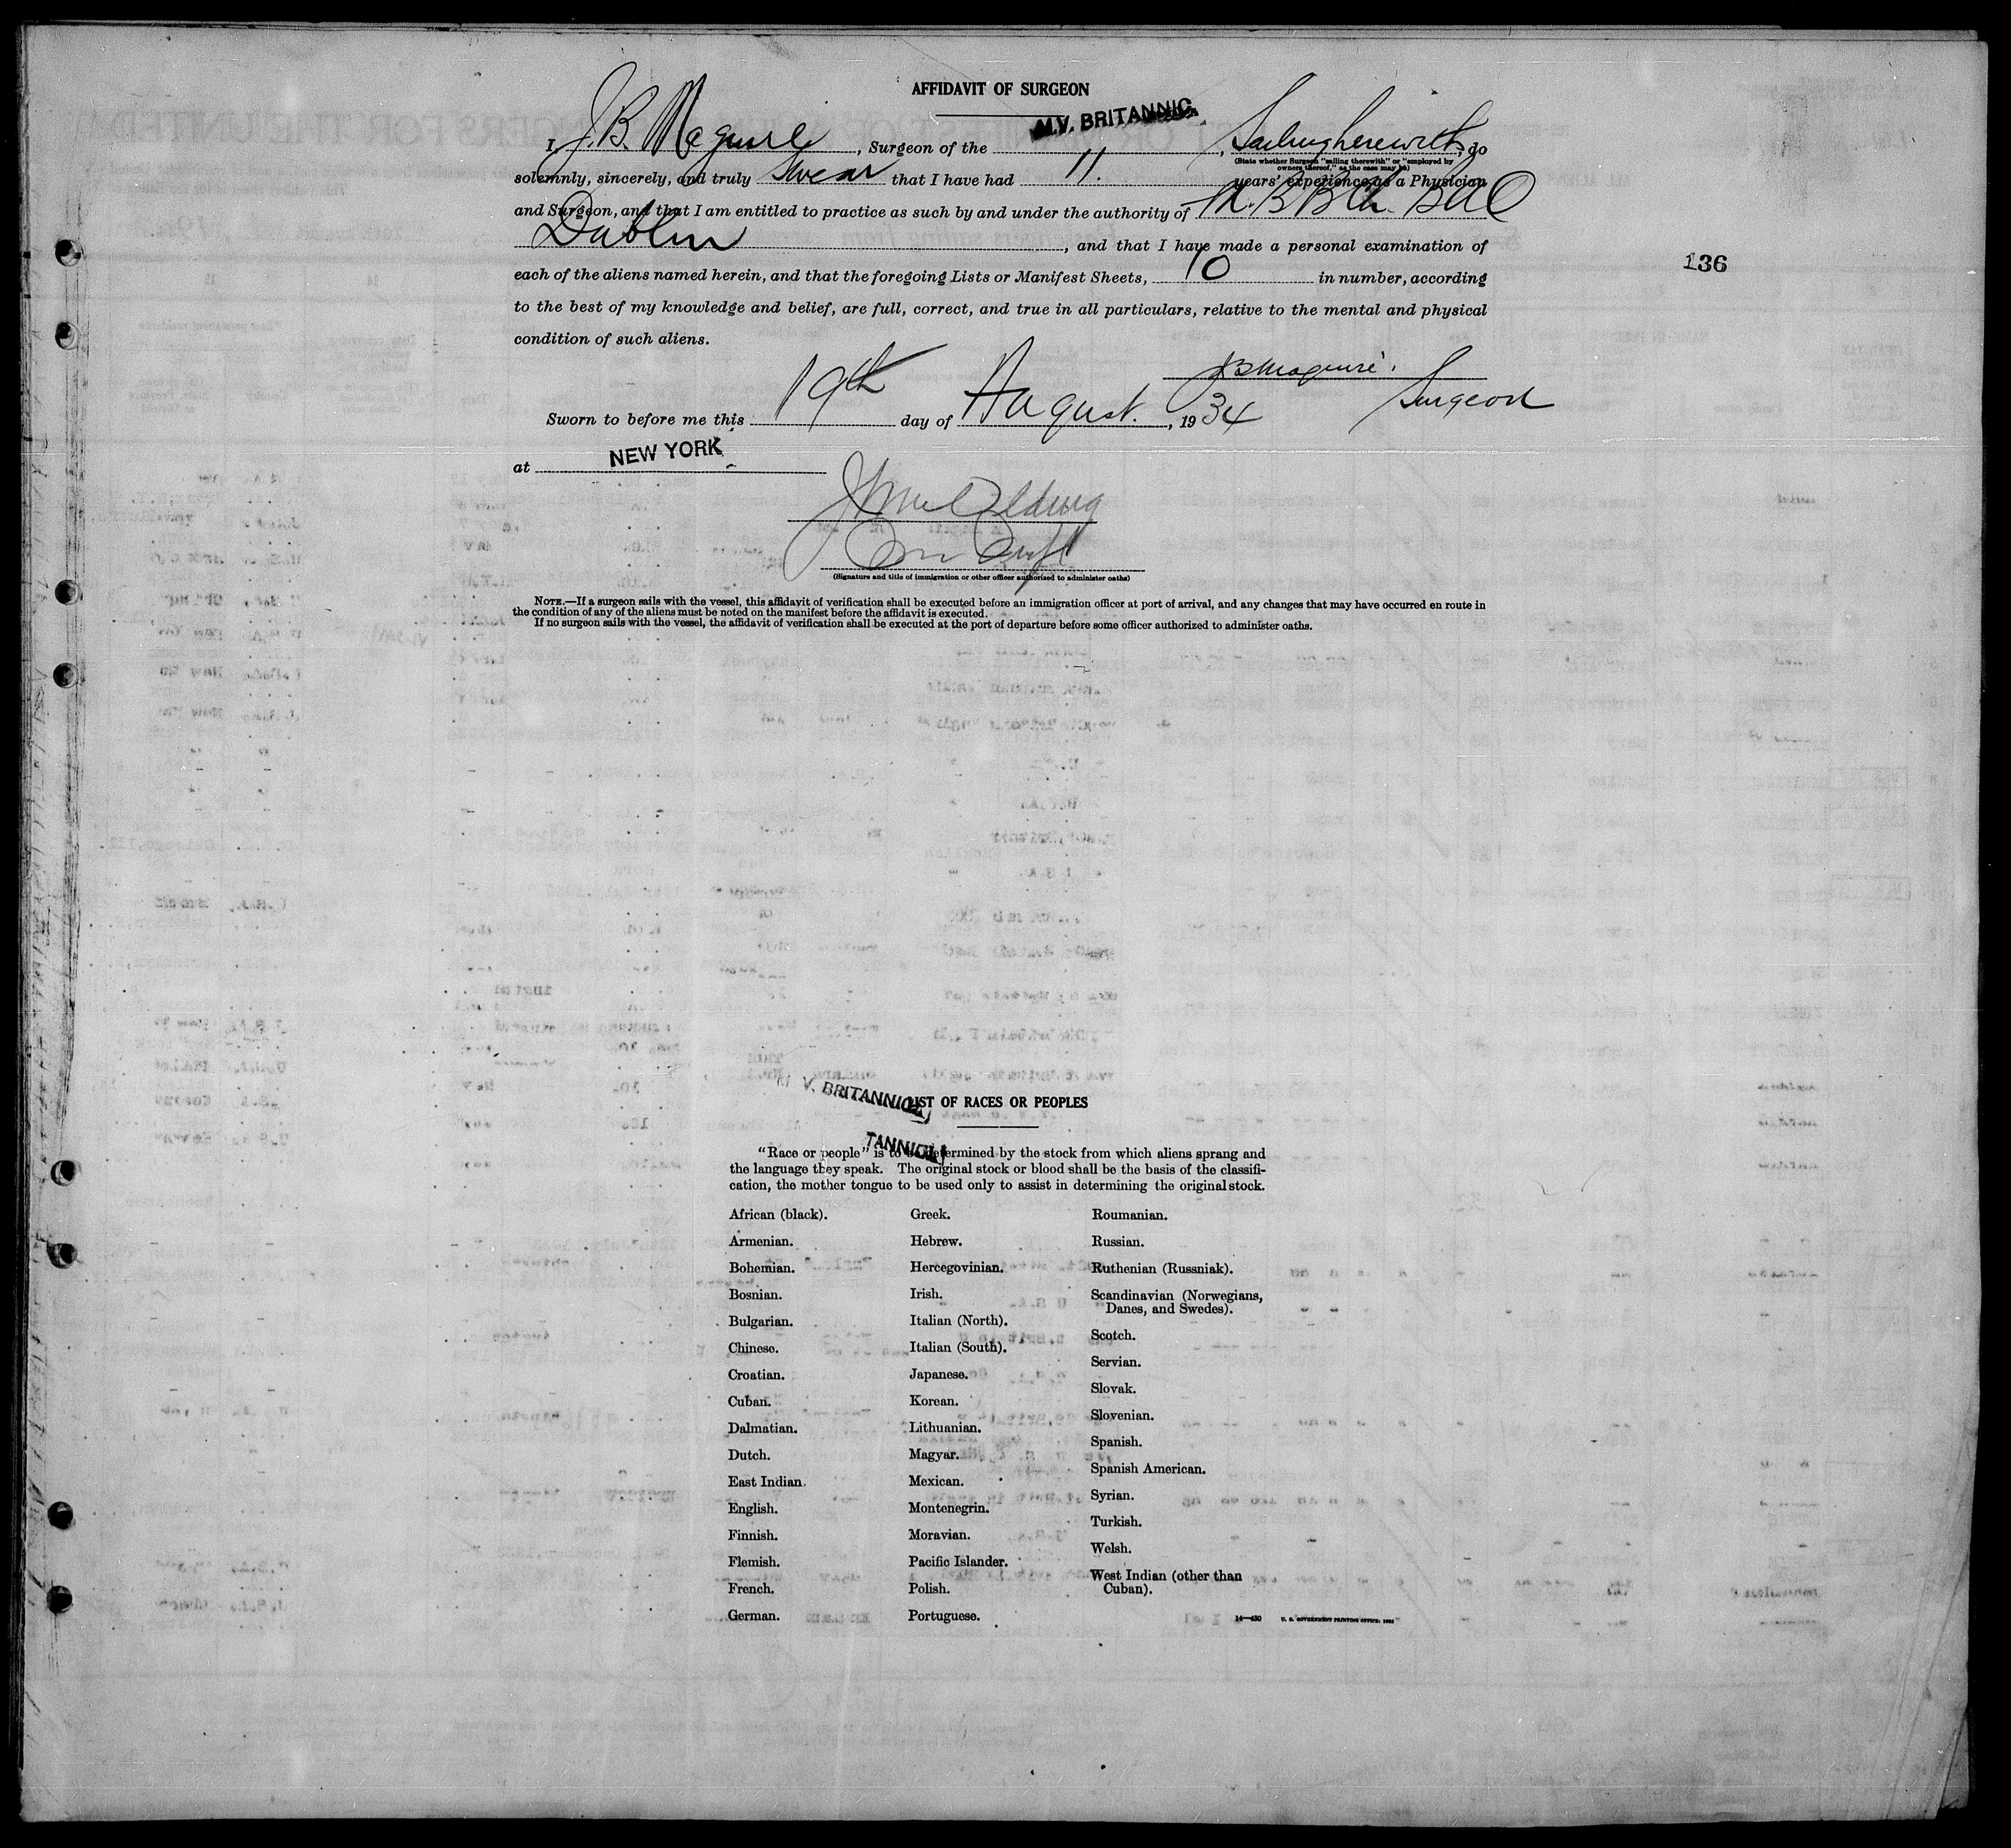 AFFIDAVIT OF SURGEON
I, J. B. Maguire, Surgeon of the M.V. BRITANNIC, Sailing herewith, do
(State whether Surgeon "sailing therewith" or "employed by
owners thereof," as the case may be)
solemnly, sincerely, and truly Swear that I have had 11. years' experience as a Physician
and Surgeon, and that I am entitled to practice as such by and under the authority of M.B B.Ch. B.A.O
Dublin, and that I have made a personal examination of
each of the aliens named herein, and that the foregoing Lists or Manifest Sheets, 10 in number, according
136
to the best of my knowledge and belief, are full, correct, and true in all particulars, relative to the mental and physical
condition of such aliens.
JB Maguire.
Surgeon
Sworn to before me this 19th day of August., 1934
at NEW YORK
(Signature and title of immigration or other officer authorized to administer oaths)
NOTE.—If a surgeon sails with the vessel, this affidavit of verification shall be executed before an immigration officer at port of arrival, and any changes that may have occurred en route in
the condition of any of the aliens must be noted on the manifest before the affidavit is executed.
If no surgeon sails with the vessel, the affidavit of verification shall be executed at the port of departure before some officer authorized to administer oaths.
M V. BRITANNIC
LIST OF RACES OR PEOPLES
TANNIC
"Race or people" is to be determined by the stock from which aliens sprang and
the language they speak. The original stock or blood shall be the basis of the classifi-
cation, the mother tongue to be used only to assist in determining the original stock.
African (black).
Armenian.
Bohemian.
Bosnian.
Bulgarian.
Chinese.
Croatian.
Cuban.
Dalmatian.
Dutch.
East Indian.
English.
Finnish.
Flemish.
French.
German.
Greek.
Hebrew.
Hercegovinian.
Irish.
Italian (North).
Italian (South).
Japanese.
Korean.
Lithuanian.
Magyar.
Mexican.
Montenegrin.
Moravian.
Pacific Islander.
Polish.
Portuguese.
Roumanian.
Russian.
Ruthenian (Russniak).
Scandinavian (Norwegians,
Danes, and Swedes).
Scotch.
Servian.
Slovak.
Slovenian.
Spanish.
Spanish American.
Syrian.
Turkish.
Welsh.
West Indian (other than
Cuban).
14—430 U. S. GOVERNMENT PRINTING OFFICE: